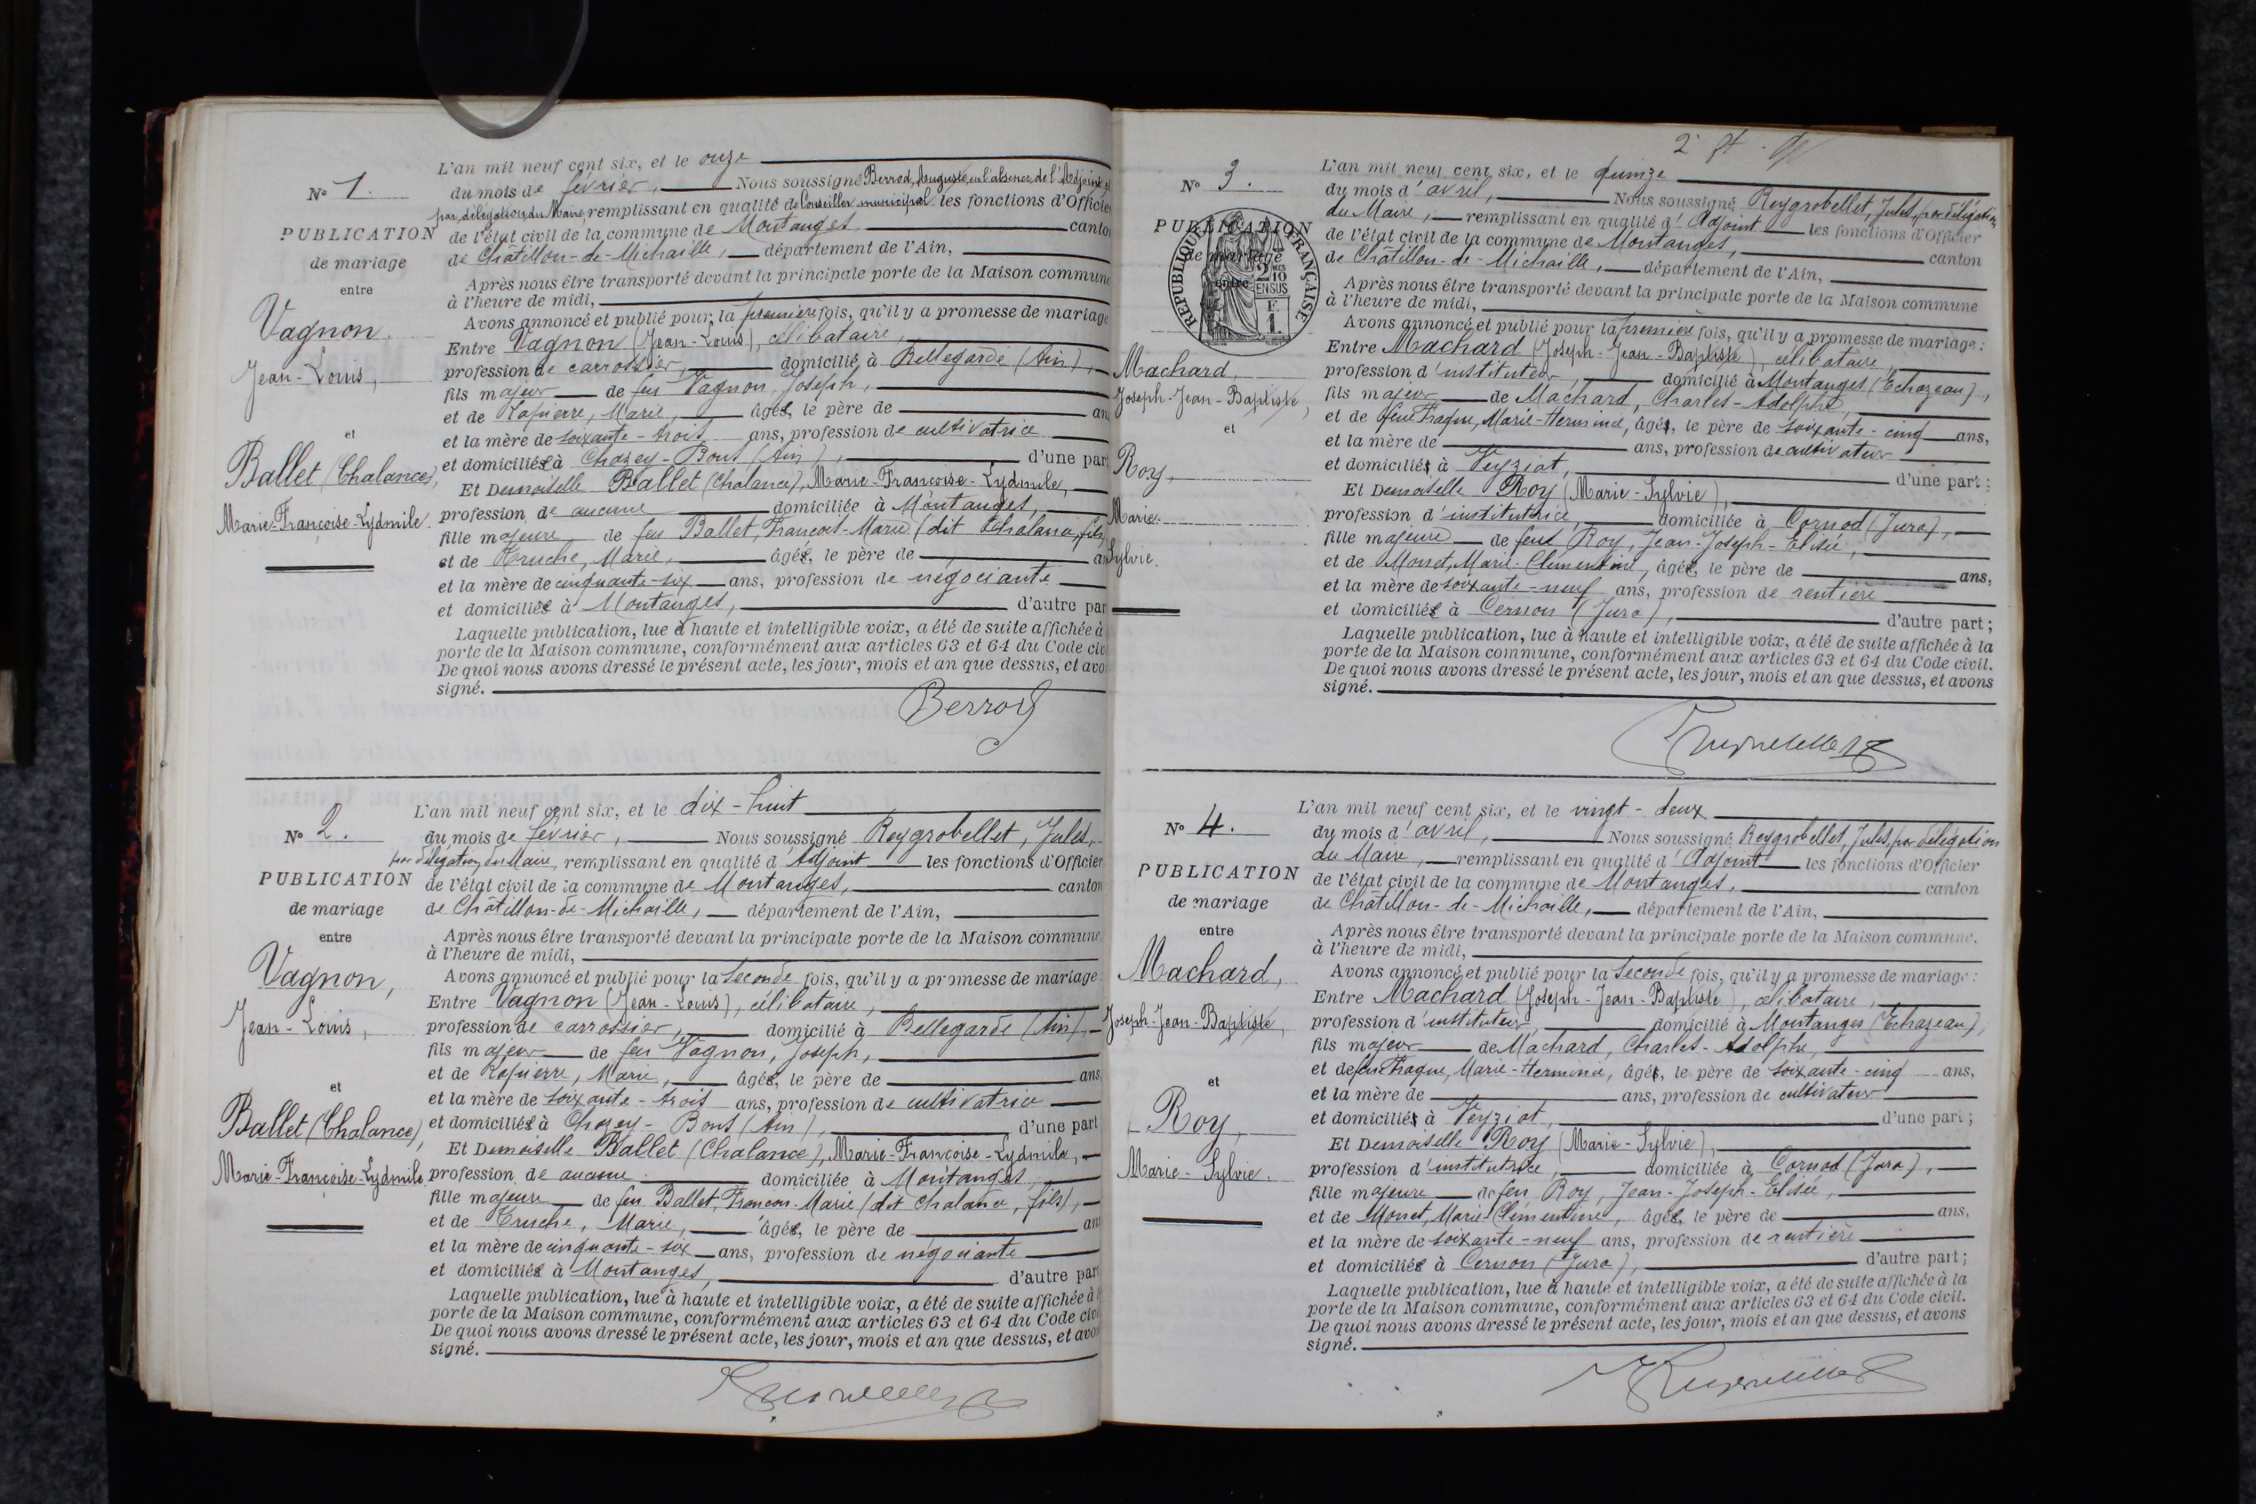 L'an mil neuf cent six, et le onze
N° 1. du mois de février, Nous soussigné Berrod, Auguste, en l'absence de l'Adjoint et
par délégation du Maire, remplissant en qualité de Conseiller municipal les fonctions d'Officier
PUBLICATION
de mariage
entre
Vagnon
Jean-Louis,
et
Ballet (Chalance),
Marie-Françoise-Lydmile.
de l'état civil de la commune de Montanges, canton
de Châtillon-de-Michaille, département de l'Ain,
Après nous être transporté devant la principale porte de la Maison commune
à l'heure de midi,
Avons annoncé et publié pour la première fois, qu'il y a promesse de mariage
Entre Vagnon (Jean-Louis), célibataire,
profession de carrossier, domicilié à Bellegarde (Ain),
fils majeur de feu Vagnon, Joseph,
et de Lapierre, Marie, âgés, le père de an
et la mère de soixante-trois ans, profession de cultivatrice
et domiciliés à Chazey-Bons (Ain), d'une par
Et Demoiselle Ballet (Chalance), Marie-Françoise-Lydmile,
profession de aucune domiciliée à Montanges,
fille majeure de feu Ballet, François-Marie (dit Chalance, fils)
et de Truche, Marie, âgés, le père de an
et la mère de cinquante-six ans, profession de négociante
et domiciliés à Montanges, d'autre par
Laquelle publication, lue à haute et intelligible voix, a été de suite affichée à
porte de la Maison commune, conformément aux articles 63 et 64 du Code civ
De quoi nous avons dressé le présent acte, les jour, mois et an que dessus, et avo
signé.
Berrod
L'an mil neuf cent six, et le dix-huit
N° 2. du mois de février, Nous soussigné Reygrobellet, Jules,
par délégation du Maire, remplissant en qualité d'Adjoint les fonctions d'Officier
PUBLICATION
de mariage
entre
Vagnon,
Jean-Louis,
et
Ballet (Chalance),
Marie-Françoise-Lydmile.
de l'état civil de la commune de Montanges, canton
de Châtillon-de-Michaille, département de l'Ain,
Après nous être transporté devant la principale porte de la Maison commune
à l'heure de midi,
Avons annoncé et publié pour la seconde fois, qu'il y a promesse de mariage
Entre Vagnon (Jean-Louis), célibataire,
profession de carrossier, domicilié à Bellegarde (Ain),
fils majeur de feu Vagnon, Joseph,
et de Lapierre, Marie, âgés, le père de ans
et la mère de soixante-trois ans, profession de cultivatrice
et domiciliés à Chazey-Bons (Ain), d'une part
Et Demoiselle Ballet (Chalance), Marie-Françoise-Lydmile,
profession de aucune domiciliée à Montanges,
fille majeure de feu Ballet, François-Marie (dit Chalance, fils),
et de Truche, Marie, âgés, le père de an
et la mère de cinquante-six ans, profession de négociante
et domiciliés à Montanges, d'autre par
Laquelle publication, lue à haute et intelligible voix, a été de suite affichée à
porte de la Maison commune, conformément aux articles 63 et 64 du Code civ
De quoi nous avons dressé le présent acte, les jour, mois et an que dessus, et avo
signé.
L'an mil neuf cent six, et le quinze
N° 3. du mois d'avril, Nous soussigné Reygrobellet, Jules, par délégation
du Maire, remplissant en qualité d'Adjoint les fonctions d'Officier
PUBLICATION
de mariage
entre
RÉPUBLIQUE FRANÇAISE
2 10 MES EN SUS
F. 1.
Machard,
Joseph-Jean-Baptiste,
et
Roy,
Marie.
Sylvie.
de l'état civil de la commune de Montanges, canton
de Châtillon-de-Michaille, département de l'Ain,
Après nous être transporté devant la principale porte de la Maison commune
à l'heure de midi,
Avons annoncé et publié pour la première fois, qu'il y a promesse de mariage :
Entre Machard (Joseph-Jean-Baptiste), célibataire,
profession d'instituteur, domicilié à Montanges (Echazeau),
fils majeur de Machard, Charles-Adolphe,
et de feue Fraque, Marie-Hermine, âgés, le père de soixante-cinq ans,
et la mère de ans, profession de cultivateur
et domiciliés à Veyziat, d'une part ;
Et Demoiselle Roy (Marie-Sylvie),
profession d'institutrice, domiciliée à Cornod (Jura),
fille majeure de feu Roy, Jean-Joseph-Elisée,
et de Monet, Marie-Clémentine, âgés, le père de ans,
et la mère de soixante-neuf ans, profession de rentière
et domiciliés à Cernon (Jura), d'autre part ;
Laquelle publication, lue à haute et intelligible voix, a été de suite affichée à la
porte de la Maison commune, conformément aux articles 63 et 64 du Code civil.
De quoi nous avons dressé le présent acte, les jour, mois et an que dessus, et avons
signé.
L'an mil neuf cent six, et le vingt-deux
N° 4. du mois d'avril, Nous soussigné Reygrobellet, Jules, par délégation
du Maire, remplissant en qualité d'Adjoint les fonctions d'Officier
PUBLICATION
de mariage
entre
Machard,
Joseph-Jean-Baptiste,
et
Roy,
Marie-Sylvie.
de l'état civil de la commune de Montanges, canton
de Châtillon-de-Michaille, département de l'Ain,
Après nous être transporté devant la principale porte de la Maison commune.
à l'heure de midi,
Avons annoncé et publié pour la seconde fois, qu'il y a promesse de mariage :
Entre Machard (Joseph-Jean-Baptiste), célibataire,
profession d'instituteur, domicilié à Montanges (Echazeau),
fils majeur de Machard, Charles-Adolphe,
et de feu Fraque, Marie-Hermine, âgés, le père de soixante-cinq ans,
et la mère de ans, profession de cultivateur
et domiciliés à Veyziat, d'une part ;
Et Demoiselle Roy (Marie-Sylvie),
profession d'institutrice, domiciliée à Cornod (Jura),
fille majeure de feu Roy, Jean-Joseph-Elisée,
et de Monet, Marie-Clémentine, âgés, le père de ans,
et la mère de soixante-neuf ans, profession de rentière
et domiciliés à Cernon (Jura), d'autre part ;
Laquelle publication, lue à haute et intelligible voix, a été de suite affichée à la
porte de la Maison commune, conformément aux articles 63 et 64 du Code civil.
De quoi nous avons dressé le présent acte, les jour, mois et an que dessus, et avons
signé.